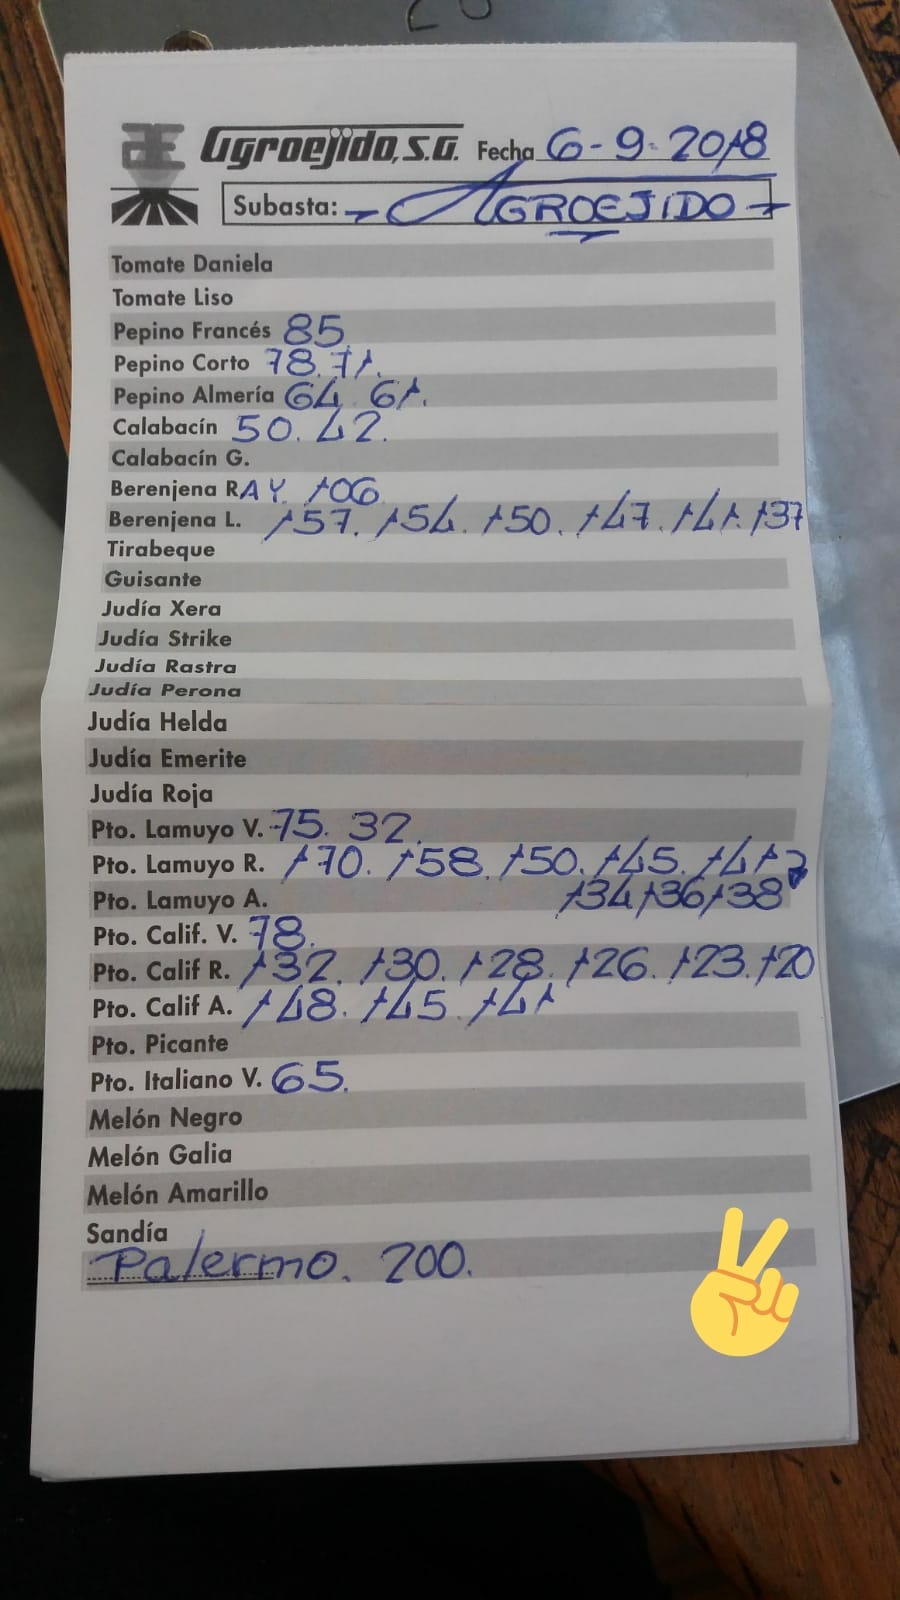 Agroejido, S.G. Fecha 6-9-2018
Subasta: AGROEJIDO
Tomate Daniela
Tomate Liso
Pepino Francés 85
Pepino Corto 78. 71.
Pepino Almería 64 61.
Calabacín 50. 42.
Calabacín G.
Berenjena RAY. 106
Berenjena L. 157. 154. 150. 147. 141. 137
Tirabeque
Guisante
Judía Xera
Judía Strike
Judía Rastra
Judía Perona
Judía Helda
Judía Emerite
Judía Roja
Pto. Lamuyo V. 75. 32.
Pto. Lamuyo R. 170. 158. 150. 145. 141
Pto. Lamuyo A. 134 136 138
Pto. Calif. V. 78.
Pto. Calif R. 132. 130. 128. 126. 123. 120
Pto. Calif A. 148. 145. 141
Pto. Picante
Pto. Italiano V. 65.
Melón Negro
Melón Galia
Melón Amarillo
Sandía
Palermo. 200.